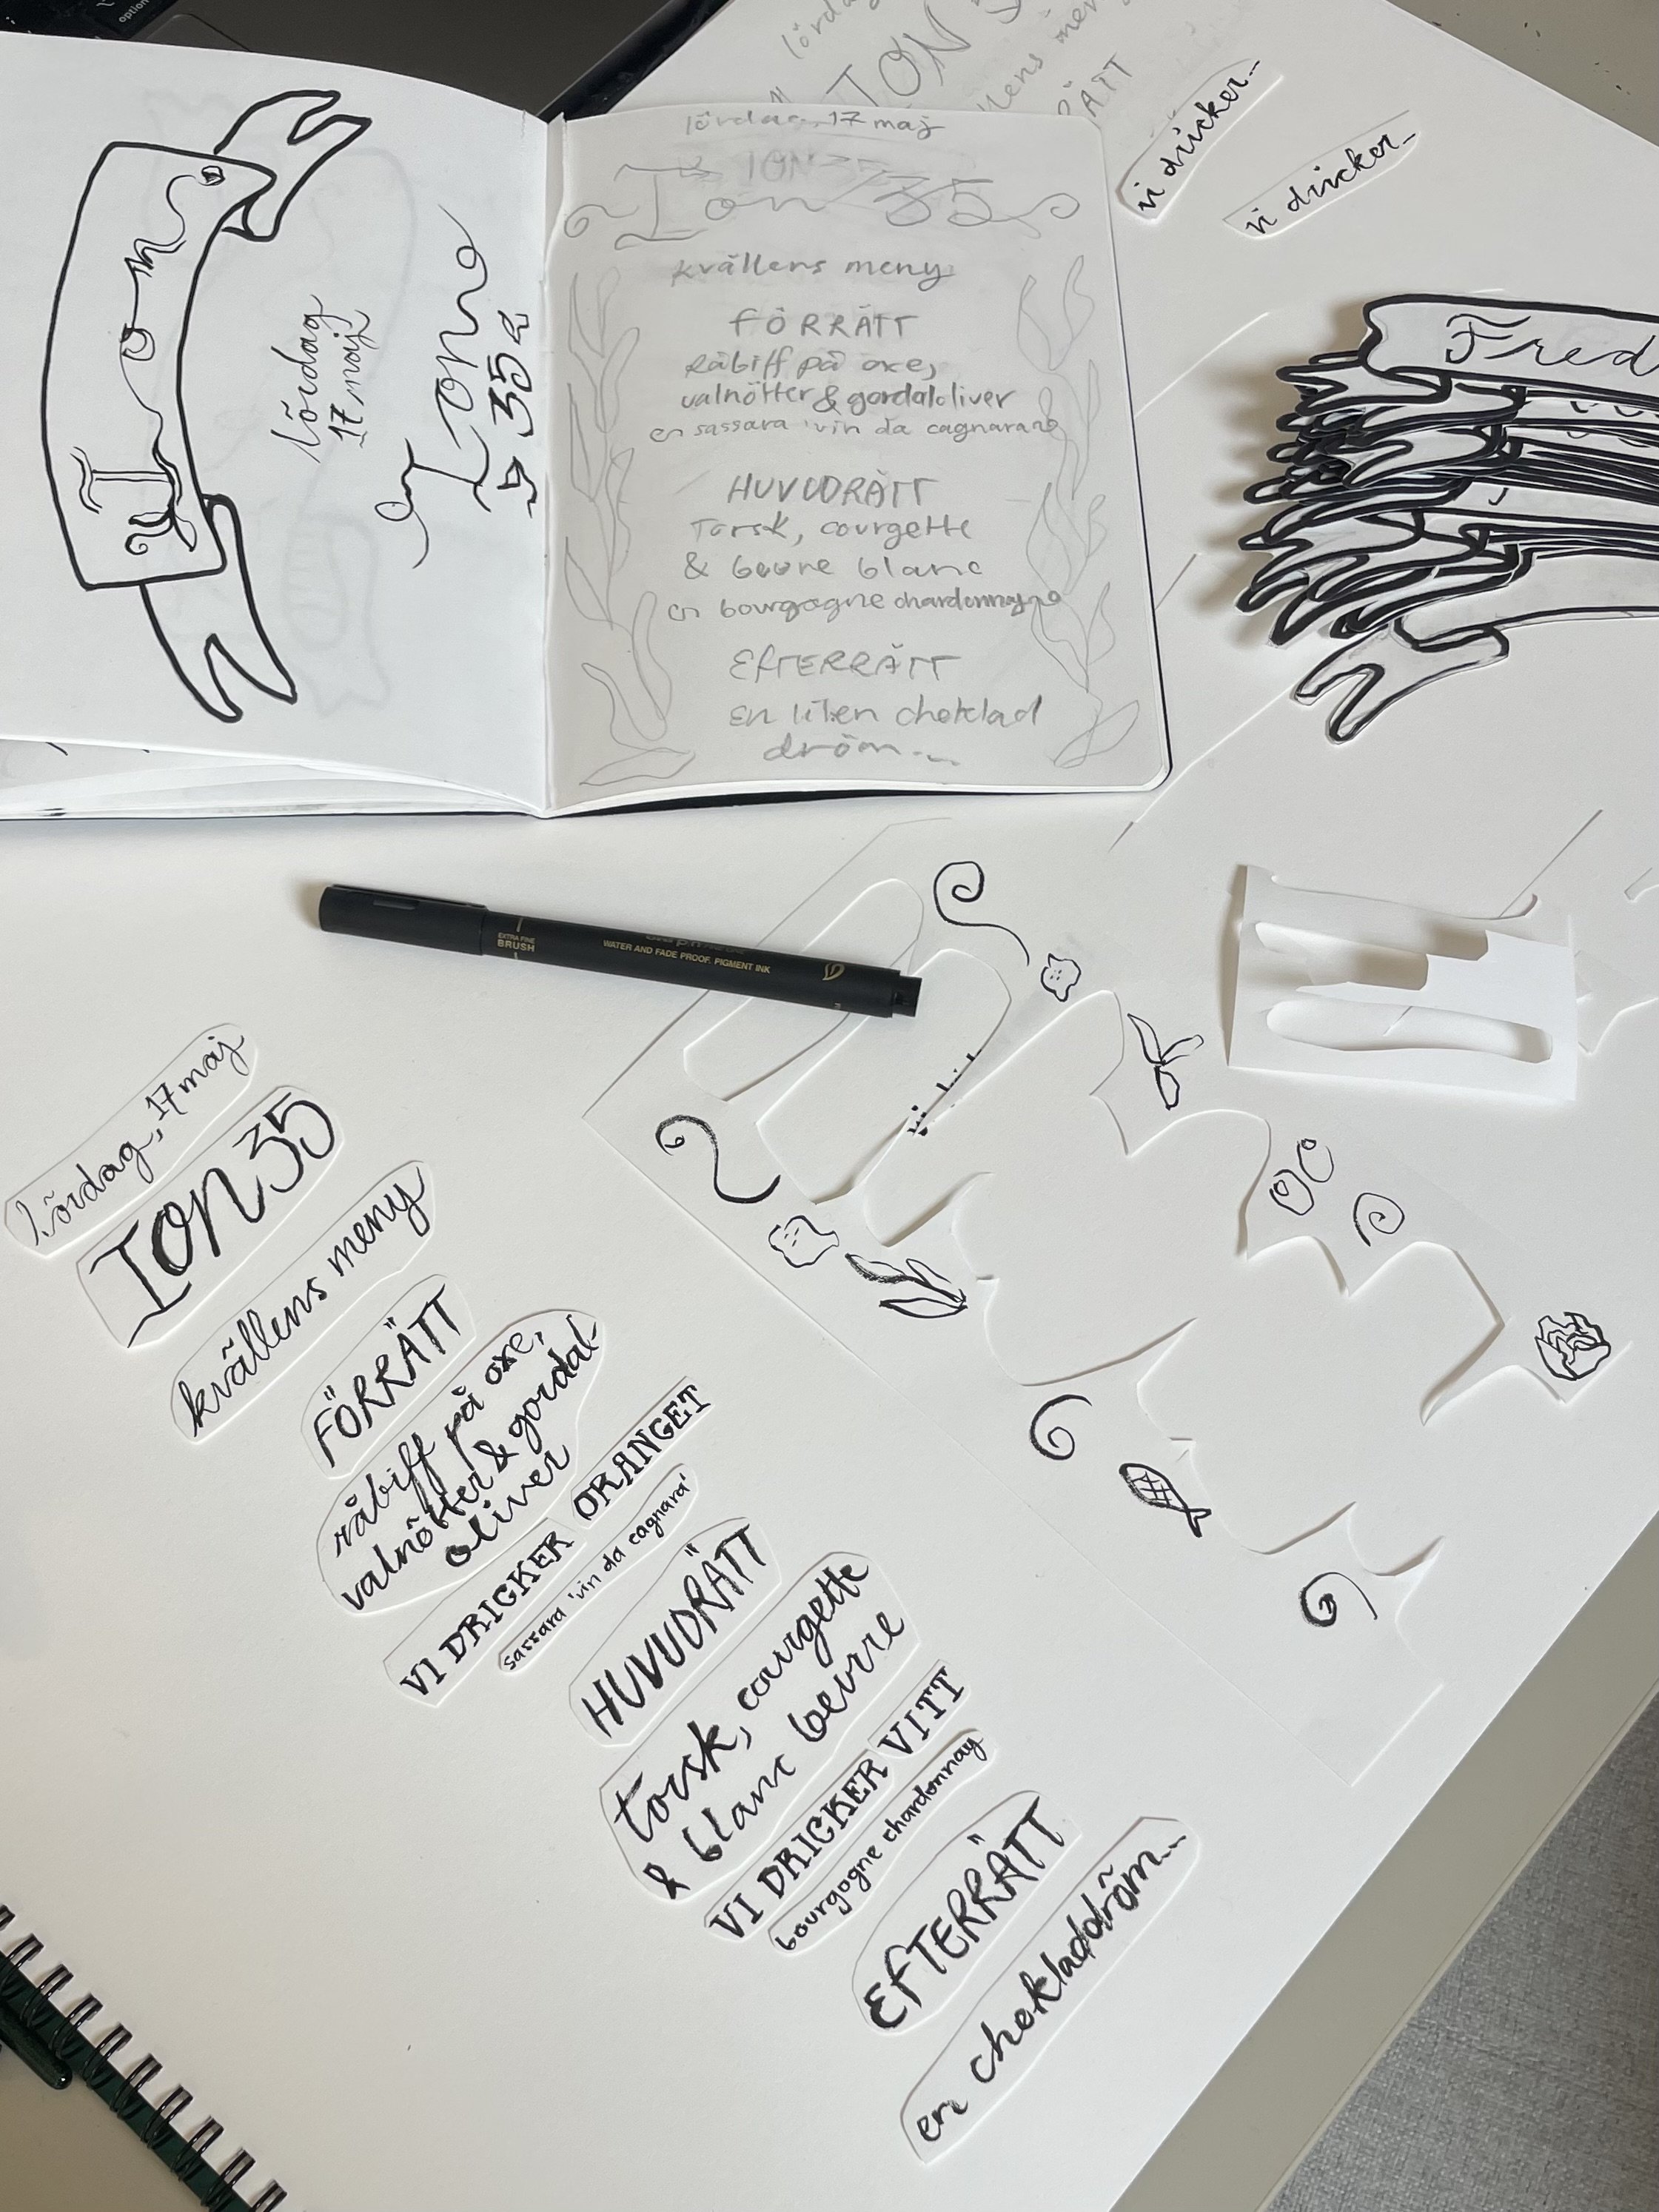 option
lörda
ION 3
llens men
RÄTT
vi dricker...
vi dricker...
Ion
lördag
17 maj
Ion
35
lördag, 17 maj
ION 35
Ion 35
kvällens meny
FÖRRÄTT
Råbiff på oxe,
valnötter & gordaloliver
en sassara 'vin da cagnara
HUVUDRÄTT
Torsk, courgette
& beurre blanc
en bourgogne chardonnay
EFTERRÄTT
En liten choklad
dröm...
Fred
EXTRA FINE
BRUSH
WATER AND FADE PROOF. PIGMENT INK
lördag, 17 maj
ION 35
kvällens meny
FÖRRÄTT
råbiff på oxe,
valnötter & gordal-
oliver
VI DRICKER ORANGET
sassara 'vin da cagnara'
HUVUDRÄTT
torsk, courgette
& blanc beurre
VI DRICKER VITT
bourgogne chardonnay
EFTERRÄTT
en chokladdröm...